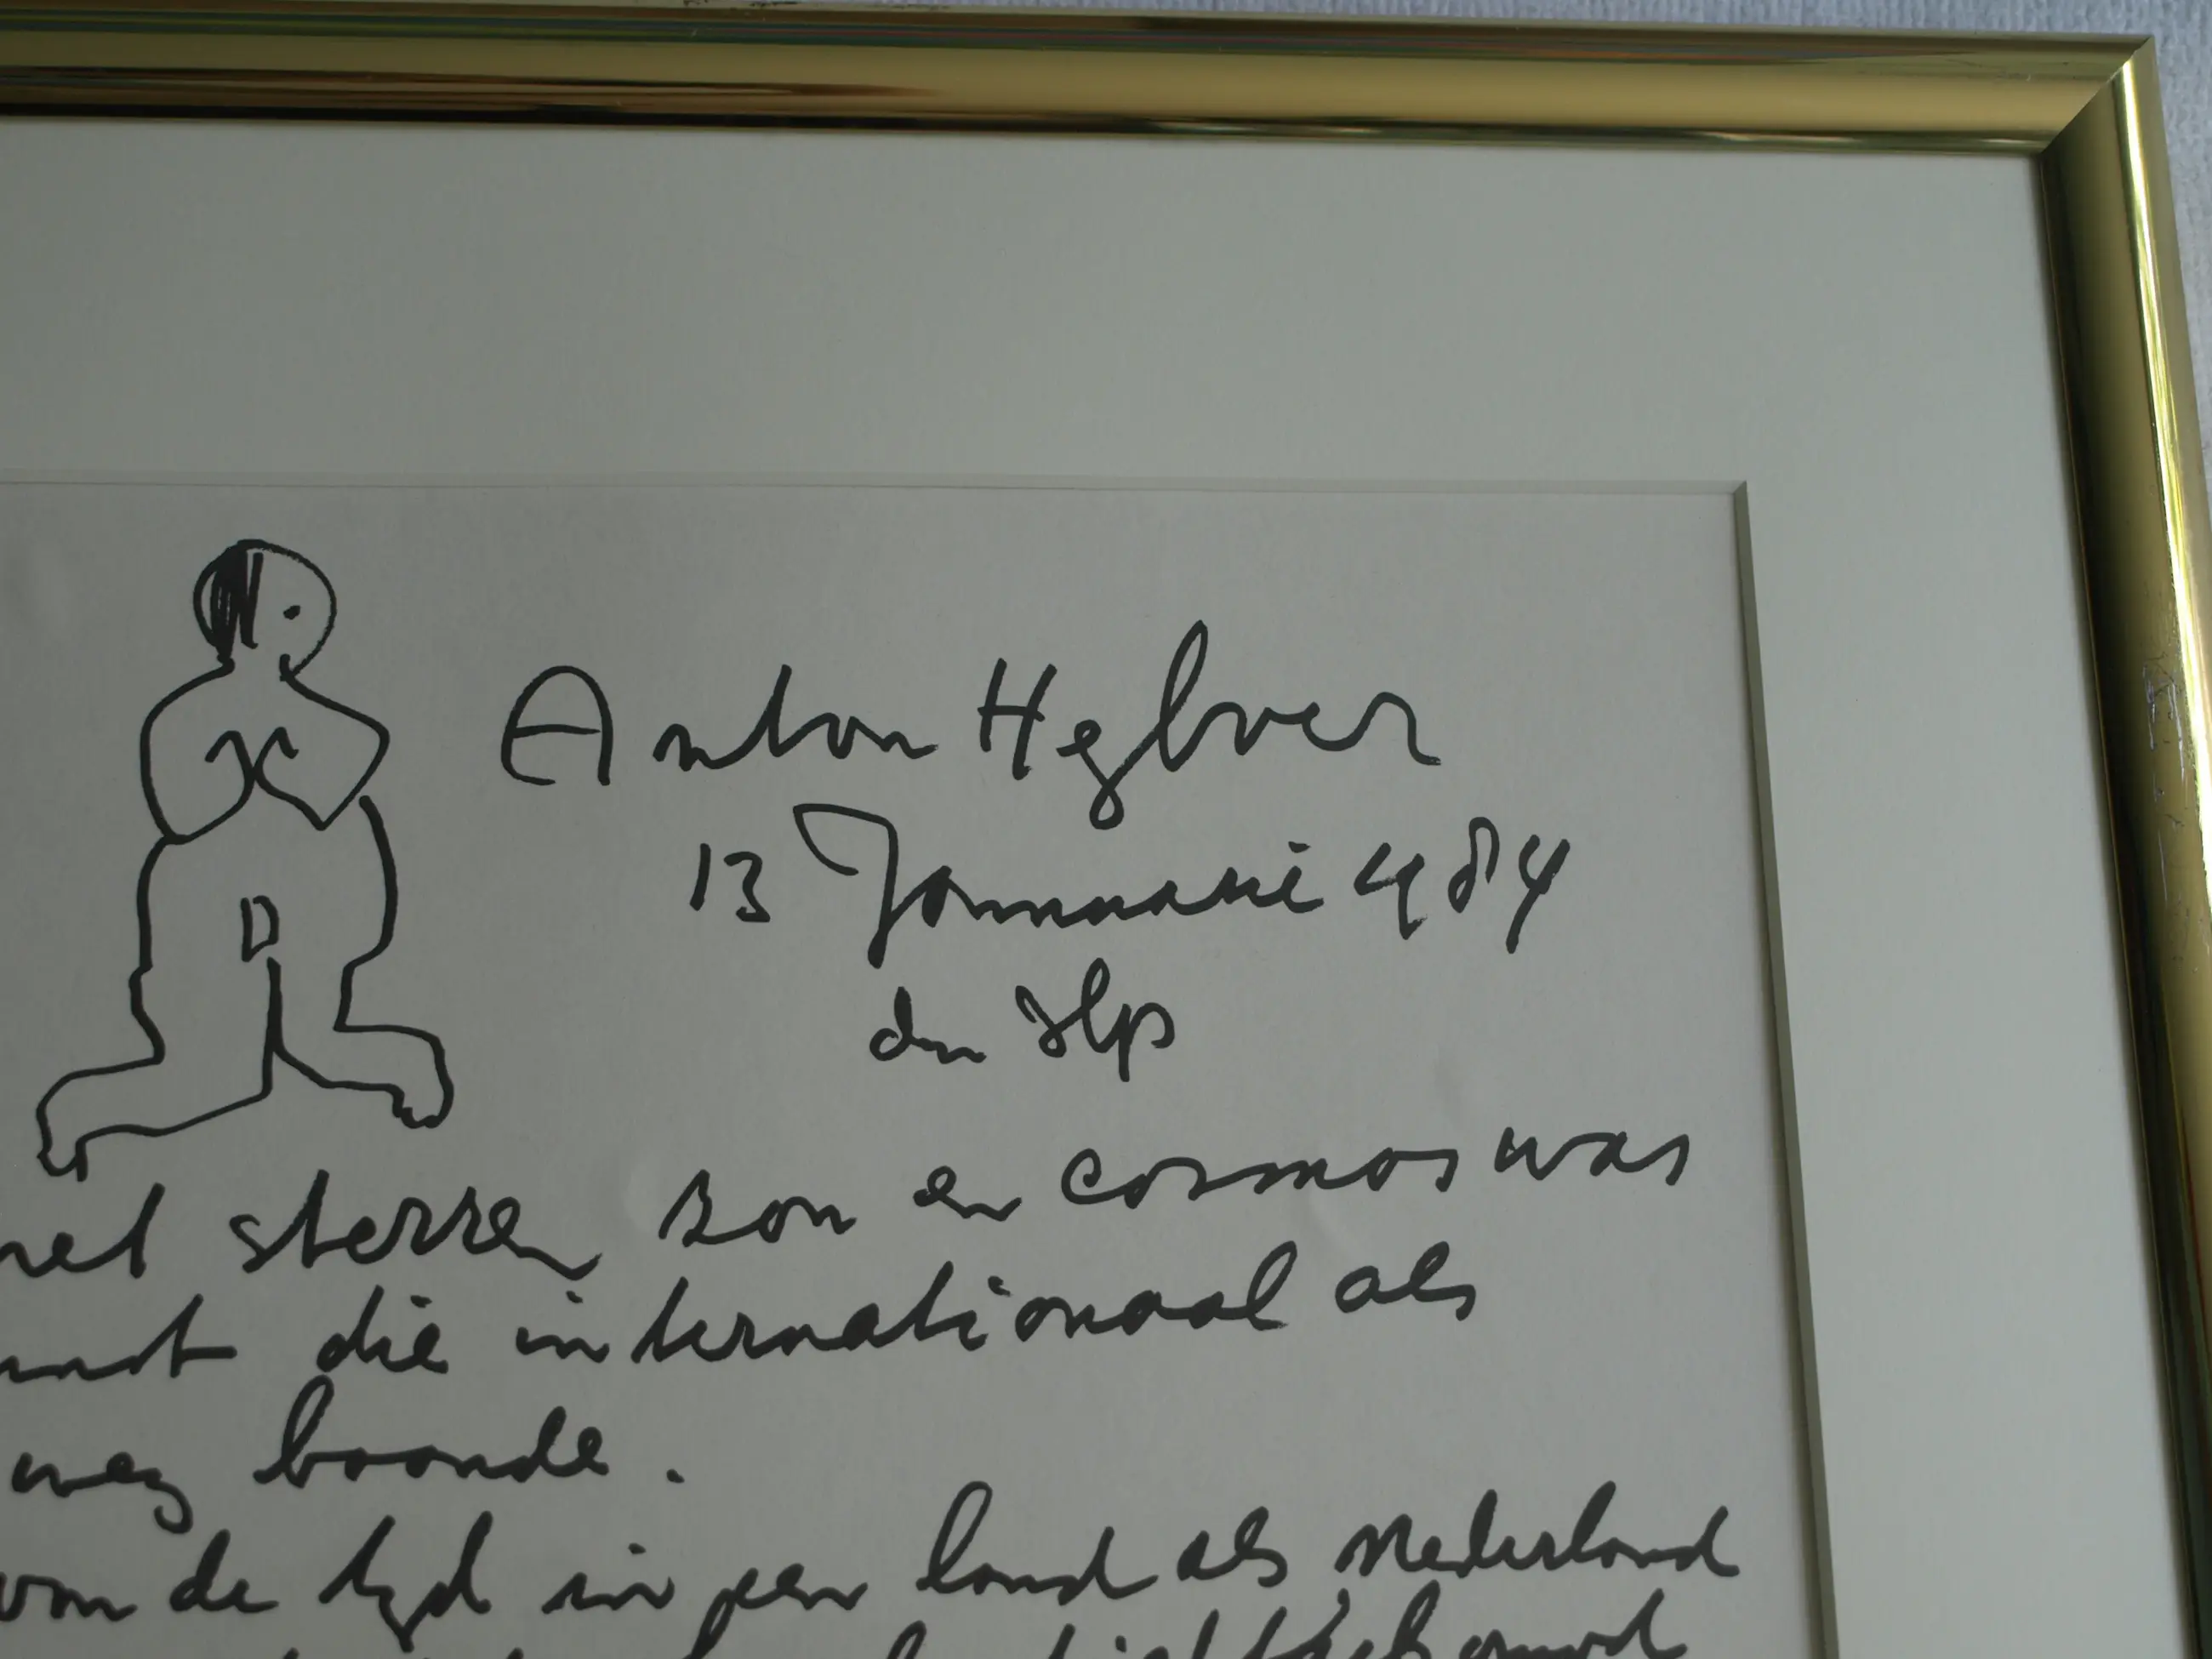 Anton Heyboer
13 Januarie 1984
den Ilp
met sterren zon en cosmos was
die internationaal als
weg baande.
van de tyd in een land als Nederland